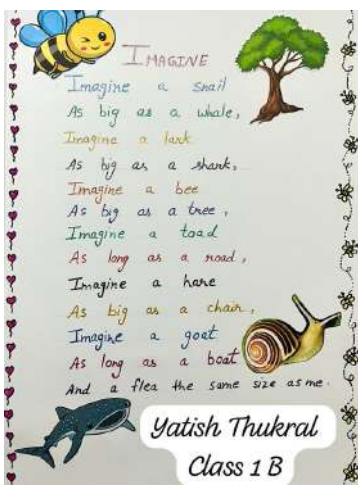 IMAGINE
Imagine a snail
As big as a whale,
Imagine a lark
As big as a shark,
Imagine a bee
As big as a tree,
Imagine a toad
As long as a road,
Imagine a hare
As big as a chair,
Imagine a goat
As long as a boat
And a flea the same size as me.
Yatish Thukral
Class 1 B